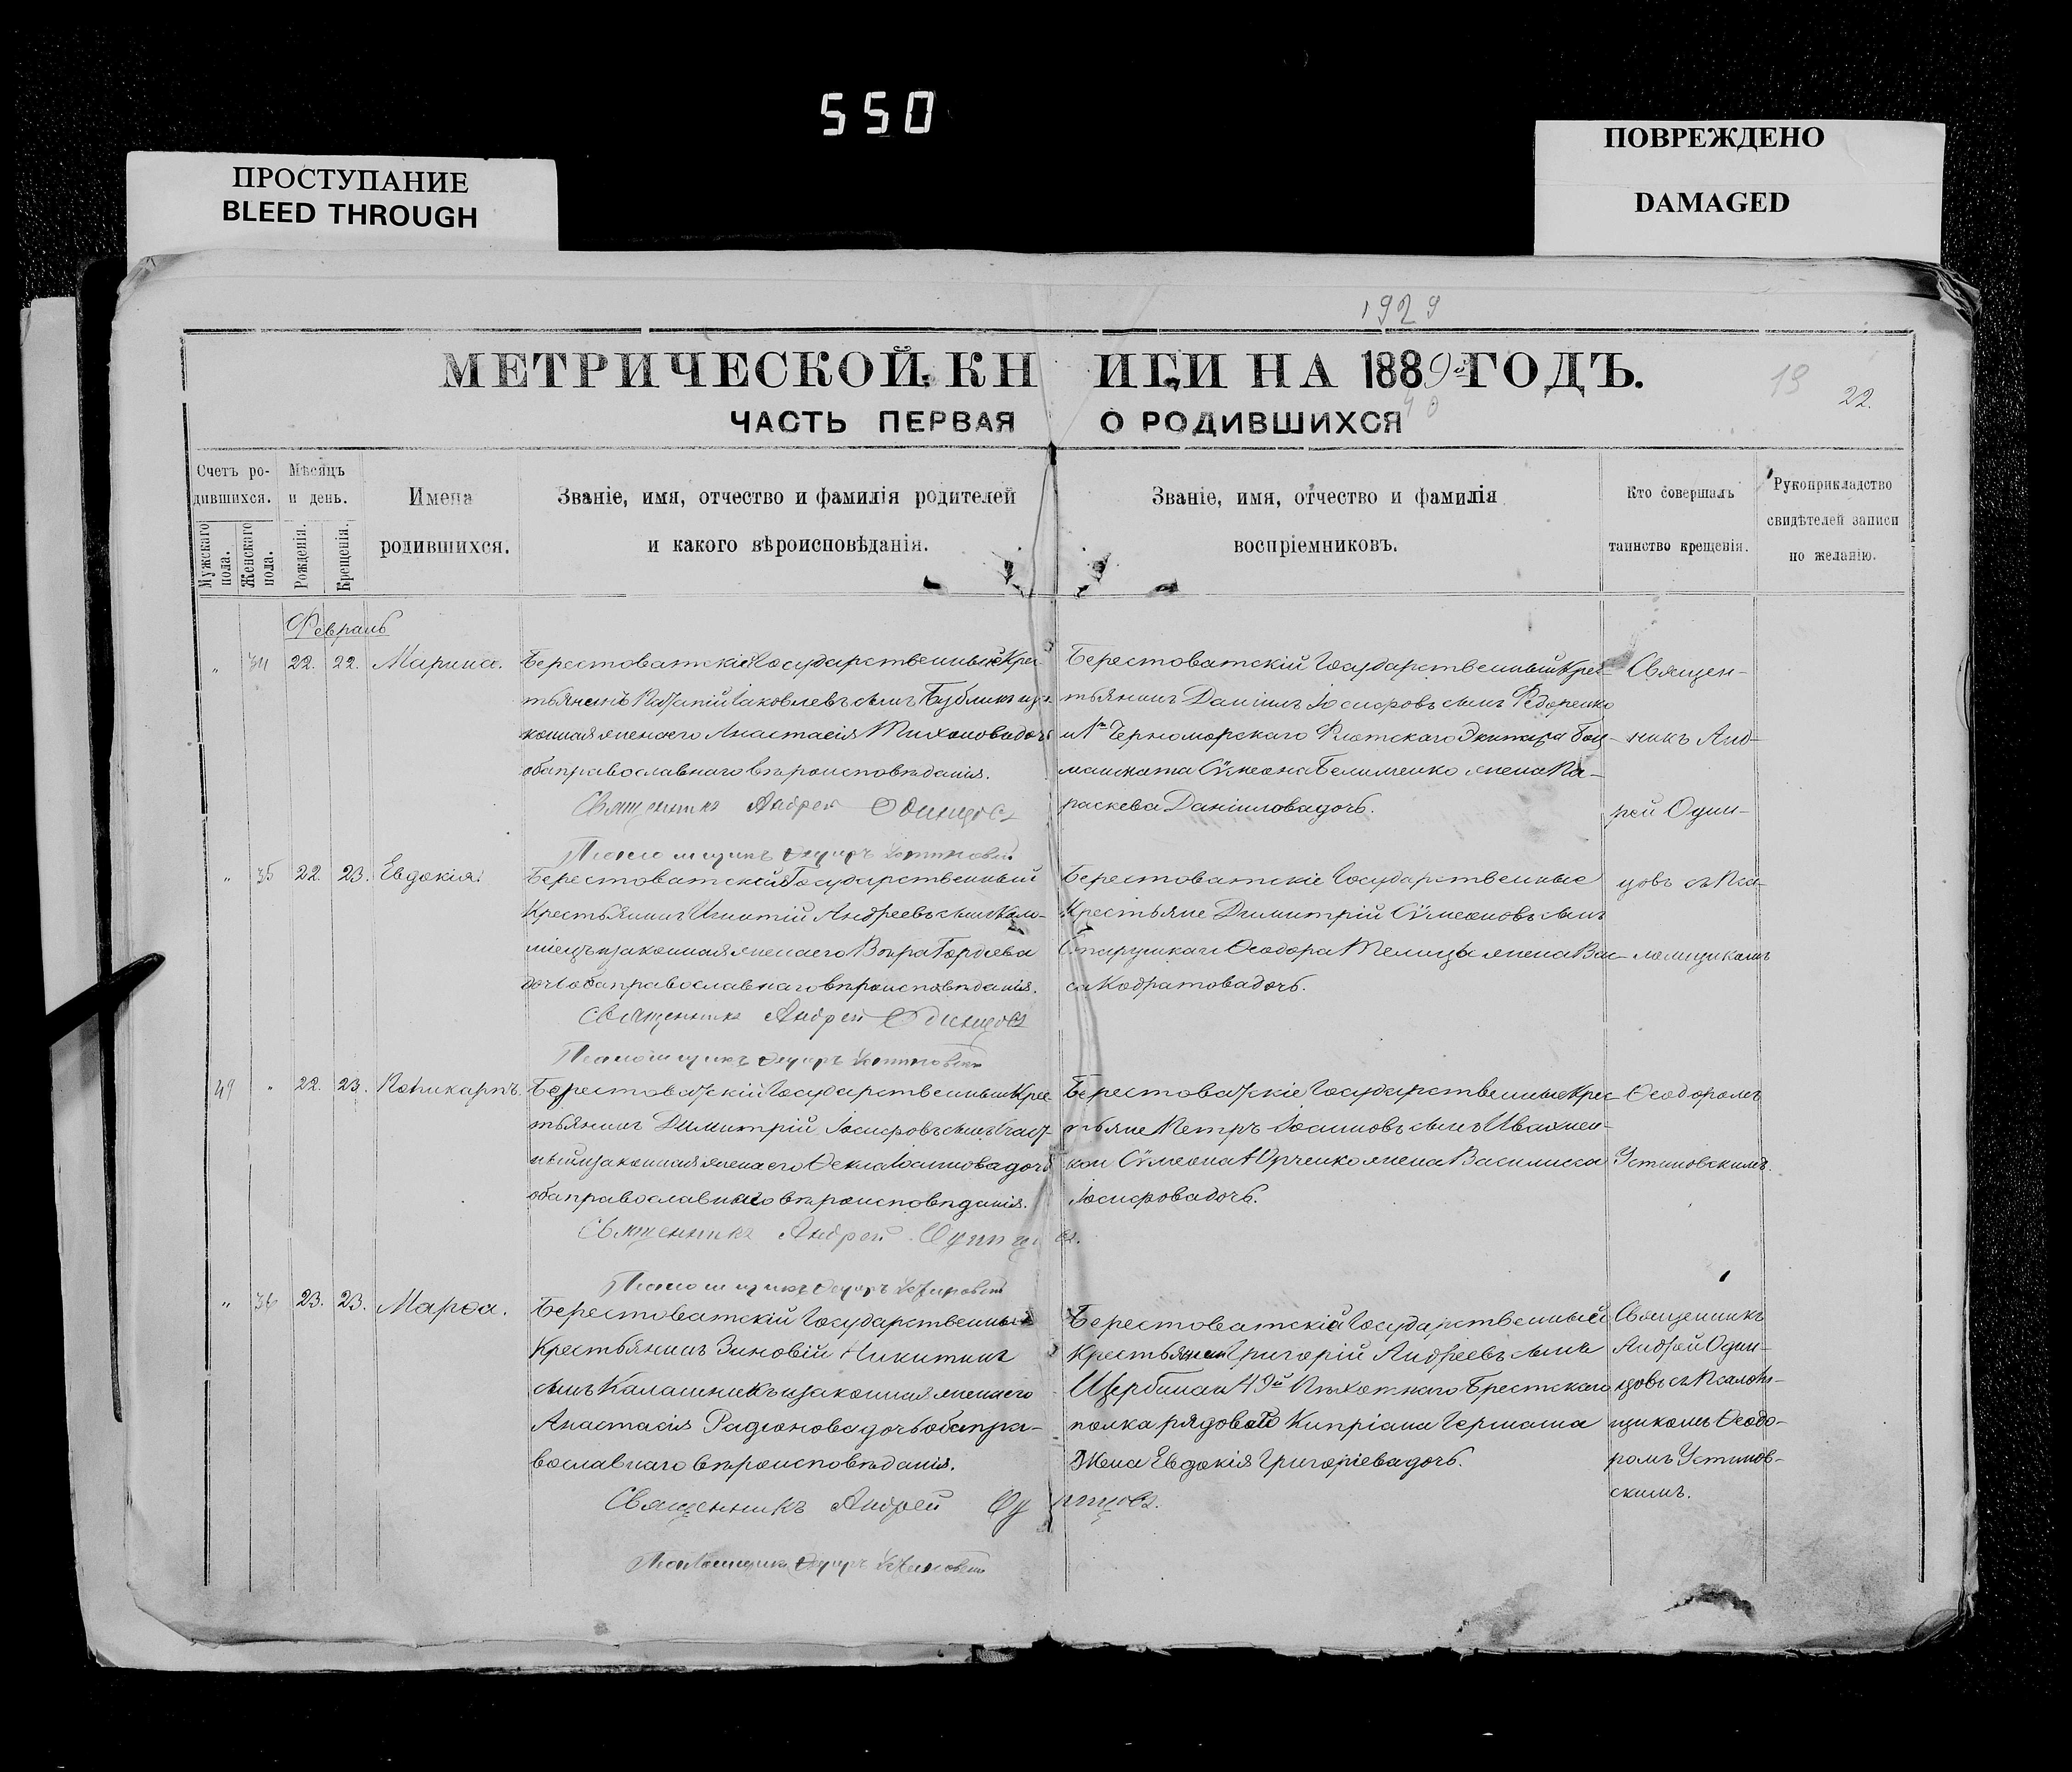 550
ПРОСТУПАНИЕ
BLEED THROUGH
ПОВРЕЖДЕНО
DAMAGED
1929
МЕТРИЧЕСКОЙ КНИГИ НА 1889й ГОДЪ.
19
22.
40
ЧАСТЬ ПЕРВАЯ О РОДИВШИХСЯ
Счетъ ро-
дившихся.
Мужскаго пола.
Женскаго пола.
Мѣсяцъ
и день.
Рожденія.
Крещенія.
Имена
родившихся.
Званіе, имя, отчество и фамилія родителей
и какого вѣроисповѣданія.
Званіе, имя, отчество и фамилія
воспріемниковъ.
Кто совершалъ
таинство крещенія.
Рукоприкладство
свидѣтелей записи
по желанію.
Февраль
" 34 22. 22. Марина.
Берестоватскій Государственный Крес-
тьянинъ Игнатій Іаковлевъ сынъ Бубликъ и за-
конная жена его Анастасія Тихонова дочь
оба православнаго вѣроисповѣданія.
Священникъ Андрей Одинцовъ
Псаломщикъ Ѳедоръ Устиновскій
Берестоватскій Государственный Крес-
тьянинъ Даніилъ Іосифовъ сынъ Ѳедоренко
и 1го Черноморскаго Флотскаго Экипажа Боц-
манмата Сѵмеона Белименко жена Па-
раскева Даніилова дочь.
Священ-
никъ Анд-
рей Один-
" 35 22. 23. Евдокія.
Берестоватскій Государственный
Крестьянинъ Игнатій Андреевъ сынъ Коло-
міецъ и законная жена его Вѣра Гордѣева
дочь оба православнаго вѣроисповѣданія.
Священникъ Андрей Одинцовъ
Псаломщикъ Ѳедоръ Устиновскій
Берестоватскіе Государственные
Крестьяне Димитрій Сѵмеоновъ сынъ
Старушка и Ѳеодора Телицы жена Вас-
са Кодратова дочь.
цовъ съ Пса-
ломщикомъ
49 " 22. 23. Поликарпъ.
Берестоватскій Государственный Крес-
тьянинъ Димитрій Іосифовъ сынъ
и законная жена его Ѳекла Іоаннова дочь
оба православнаго вѣроисповѣданія.
Священникъ Андрей Одинцовъ.
Псаломщикъ Ѳедоръ Устиновскій
Берестоватскіе Государственные Крес-
тьяне Петръ Іоанновъ сынъ Ивахнен-
ко и Сѵмеона Юрченко жена Василисса
Іосифова дочь.
Ѳеодоромъ
Устиновскимъ.
" 36 23. 23. Марѳа.
Берестоватскій Государственный
Крестьянинъ Зиновій Никитинъ
сынъ Калашникъ и законная жена его
Анастасія Радіонова дочь оба пра-
вославнаго вѣроисповѣданія.
Священникъ Андрей Одинцовъ.
Псаломщикъ Ѳедоръ Устиновскій
Берестоватскій Государственный
Крестьянинъ Григорій Андреевъ сынъ
Щербина и 49й Пѣхотнаго Брестскаго
полка рядоваго Кипріана Германа
Жена Евдокія Григоріева дочь.
Священникъ
Андрей Один-
цовъ съ Псалом-
щикомъ Ѳеодо-
ромъ Устинов-
скимъ.